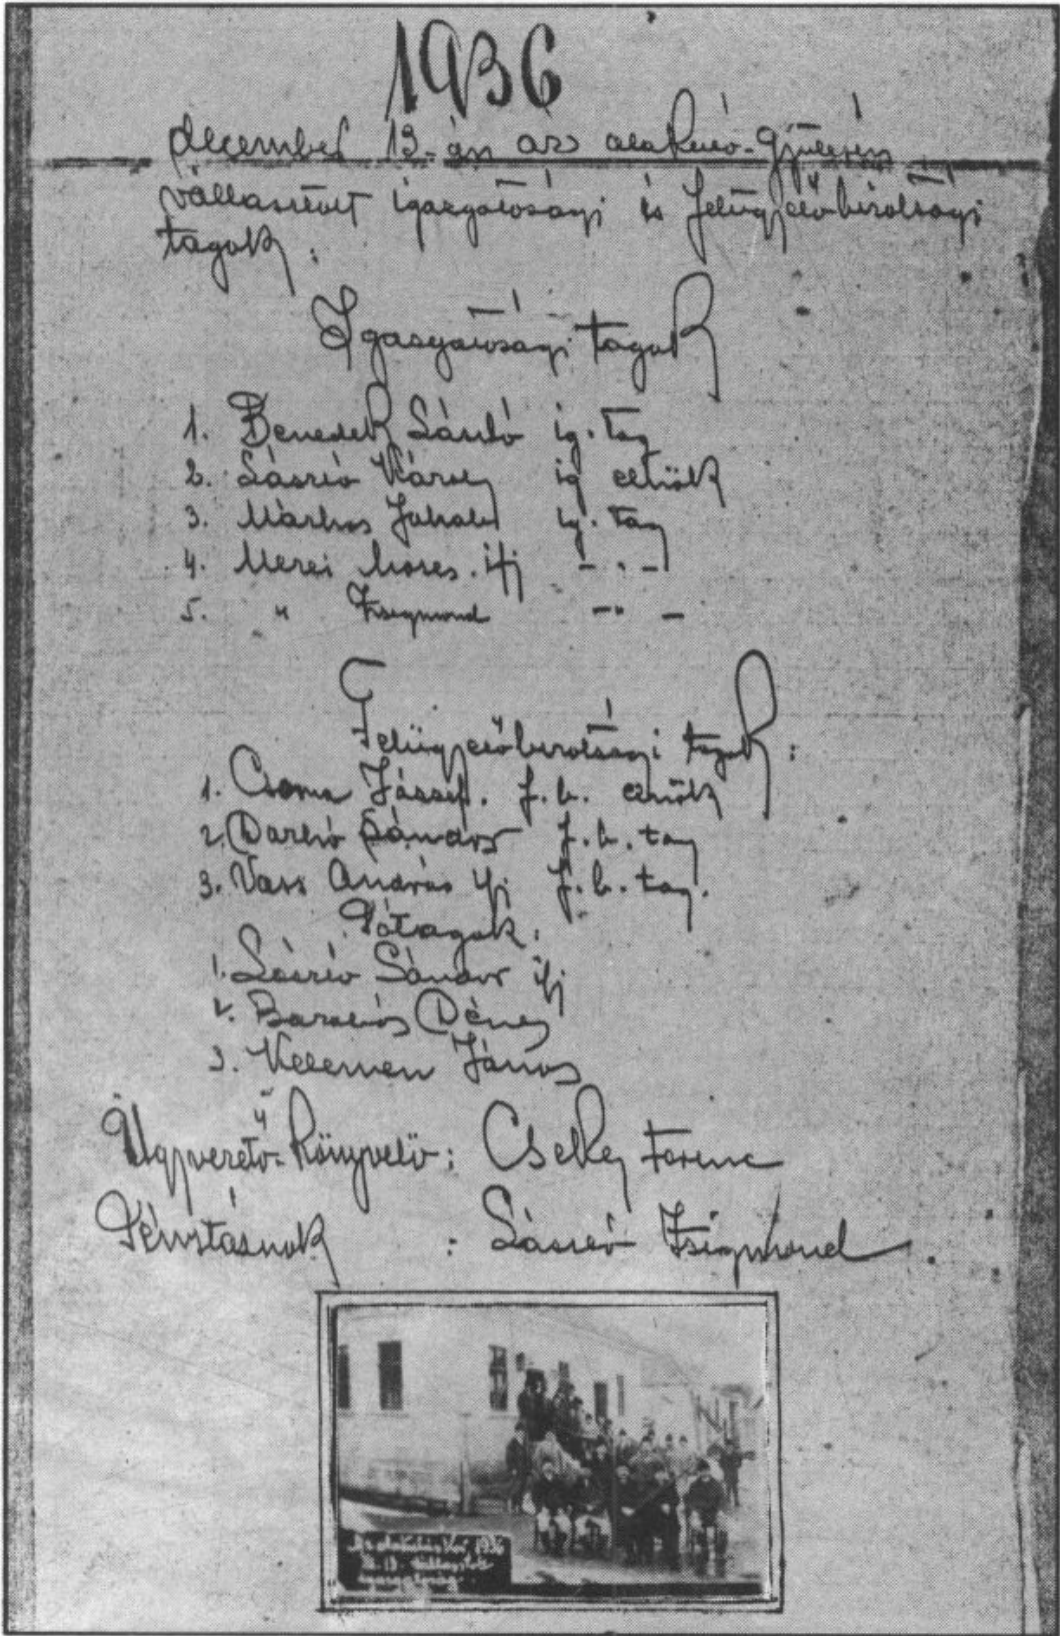 1936
december 13-án az alakuló-gyűlésen
vállasztott igazgatósági és felügyelőbizottsági
tagok:
Igazgatósági tagok
1. Benedek László ig. tag
2. László Károly ig elnök
3. Márkos Jakab ig. tag
4. Merei Mozes. ifj - . -
5. " Zsigmond -" -
Felügyelőbizottsági tagok:
1. Csoma József. f.b. elnök
2. Darkó Sándor f.b. tag
3. Vass András ifj f.b. tag.
Póttagok:
1. László Sándor ifj
2. Barabás Dénes
3. Kelemen János
Ügyvezető-könyvelő: Csekey Ferenc
Pénztásnok : László Zsigmond.
Az alakuláskor 1936
XII. 13. vállasztott
igazgatóság